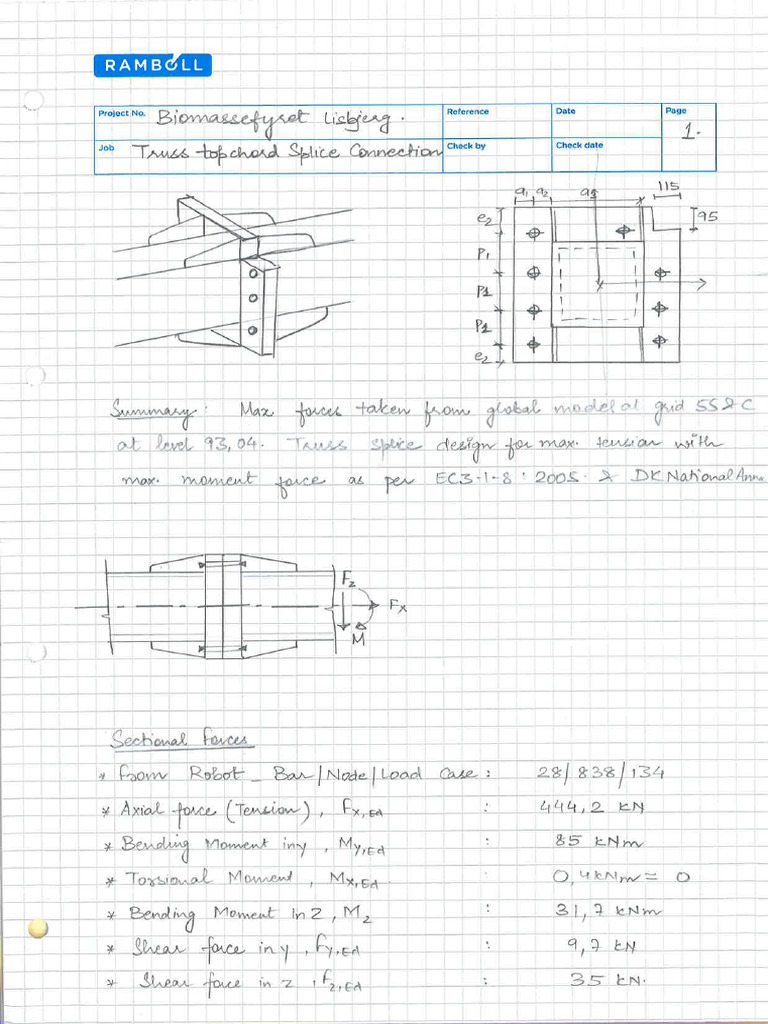 RAMBOLL
Project No. Biomassefyret Lisbjerg. Reference Date Page 1.
Job Truss topchord Splice Connection Check by Check date
a1 a2 a3 115
e2 95
P1
P1
P1
e2
Summary: Max forces taken from global model at grid 55 & C
at level 93,04. Truss Splice design for max. tension with
max. moment force as per EC3-1-8 : 2005. & DK National Anne
Fz
Fx
M
Sectional Forces
* From Robot_ Bar/Node/Load Case : 28/838/134
* Axial force (Tension), Fx,Ed : 444,2 kN
* Bending Moment in y, My,Ed : 85 kNm
* Torsional Moment, Mx,Ed. : 0,4kNm = 0
* Bending Moment in Z, Mz : 31,7 kNm
* Shear force in y, Fy,Ed : 9,7 kN
* Shear force in z, Fz,Ed : 35 kN.